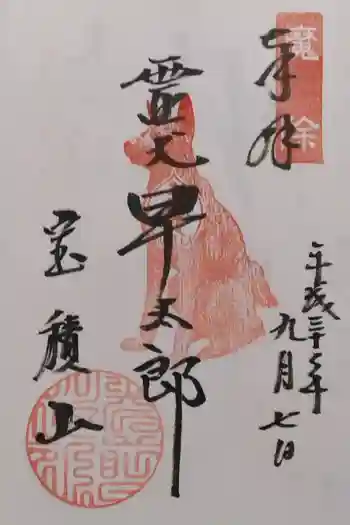 魔除
奉拝
平成三十年
九月七日
霊犬早太郎
宝積山